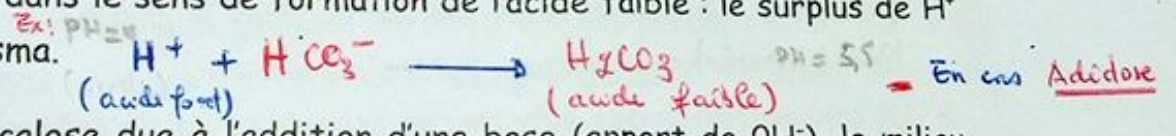 dans le sens de formation de l'acide faible : le surplus de H⁺
Ex: PH=4
sma. H⁺ + HCO₃⁻ → H₂CO₃ PH = 5,5 - En cas Adidose
(acide fort) (acide faible)
calose due à l'addition d'une base (apport de OH⁻), le milieu